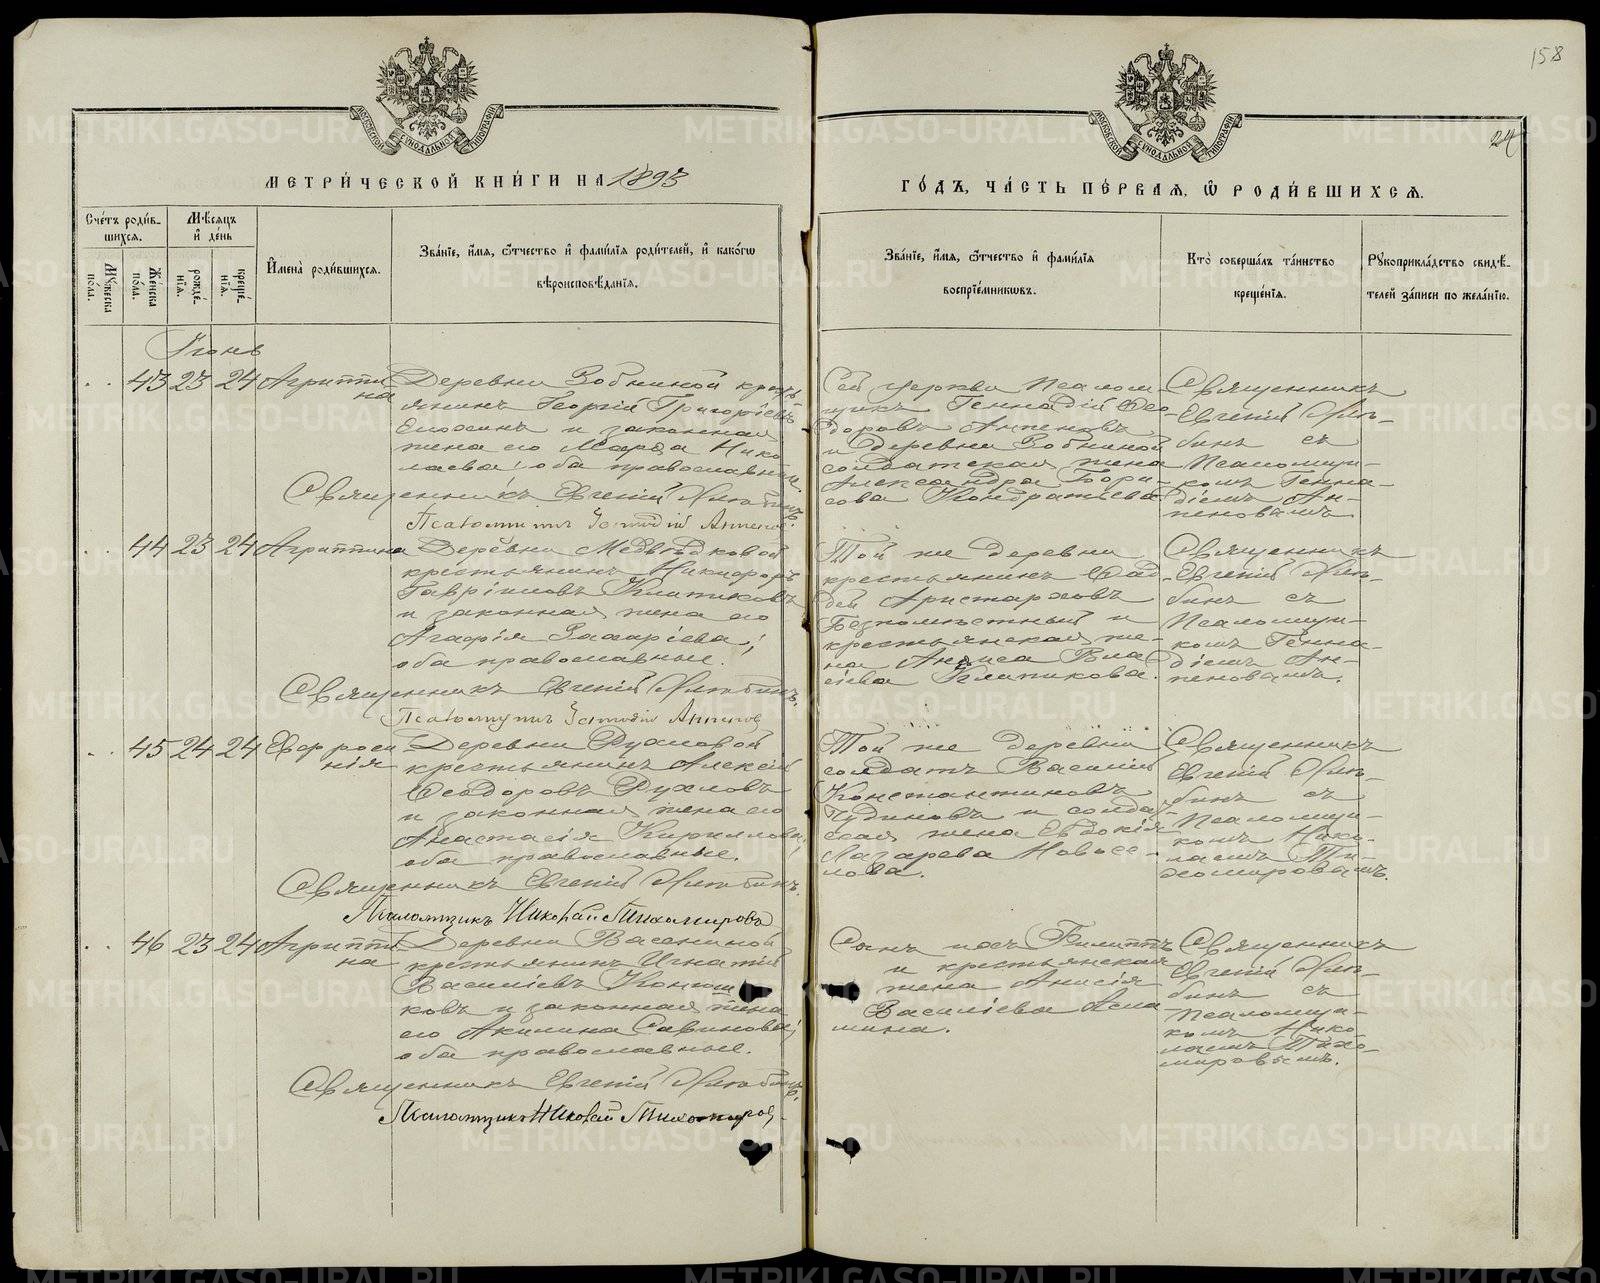 158
24
МОСКОВСКОЙ СѴНОДАЛЬНОЙ ТИПОГРАФІИ
МОСКОВСКОЙ СѴНОДАЛЬНОЙ ТИПОГРАФІИ
МЕТРИ́ЧЕСКОЙ КНИ́ГИ НА 1893
ГО́ДЪ, ЧА́СТЬ ПЕ́РВАЯ, Ѡ РОДИ́ВШИХСЯ.
Сче́тъ роди́в-
шихся.
Мѣ́сяцъ
и де́нь
Му́жеска
по́ла.
Же́нска
по́ла.
рожде́-
нія.
креще́-
нія.
Имена̀ роди́вшихся.
Зва́ніе, и́мя, ѻ́тчество и фами́лія роди́телей, и како́гѡ
вѣроисповѣ́данія.
Зва́ніе, и́мя, ѻ́тчество и фами́лія
воспріе́мникѡвъ.
Кто̀ соверша́лъ та́инство
креще́нія.
Рукоприкла́дство свидѣ́-
телей за́писи по жела́нію.
Іюнь
43 23 24 Агриппи-
на
Деревни Зобниной кресть-
янинъ Георгій Григоріевъ
и законная
жена его Марѳа Нико-
лаева; оба православные.
Священникъ Евгеній Хлябинъ.
Псаломщикъ Геннадій
Сей церкви Псалом-
щикъ Геннадій Ѳео-
доровъ
и деревни Зобниной
солдатская жена
Александра Бори-
сова Кондратьева
Священникъ
Евгеній
бинъ съ
Псаломщи-
комъ Генна-
діемъ Ан-
пеновымъ
44 23 24 Агриппина
Деревни Медвѣдковой
крестьянинъ Никифоръ
Гавріиловъ Клепиковъ
и законная жена его
Агафія Захаріева;
оба православные.
Священникъ Евгеній
Псаломщикъ Геннадій
Той же деревни
крестьянинъ Ѳад-
дей Аристарховъ
Безпомѣстный и
крестьянская же-
на Анфиса Вла-
сіева Клепикова.
Священникъ
Евгеній
бинъ съ
Псаломщи-
комъ Генна-
діемъ Ан-
пеновымъ.
45 24 24 Евфроси-
нія
Деревни Рухловой
крестьянинъ Алексій
Ѳеодоровъ Рухловъ
и законная жена его
Анастасія Кириллова;
оба православные.
Священникъ Евгеній
Псаломщикъ Николай Тихомировъ
Той же деревни
солдатъ Василій
Константиновъ
Чудиновъ и солдат-
ская жена Евдокія
Лазарева Новосе-
лова.
Священникъ
Евгеній
бинъ съ
Псаломщи-
комъ Нико-
лаемъ Ти-
хомировымъ.
46 23 24 Агриппи-
на
Деревни Васениной
крестьянинъ Игнатій
Василіевъ
ковъ и законная жена
его Акилина Савинова;
оба православные.
Священникъ Евгеній
Псаломщикъ Николай Тихомировъ
Сынъ ихъ Филиппъ
и крестьянская
жена Анисія
Василіева
мина.
Священникъ
Евгеній
бинъ съ
Псаломщи-
комъ Нико-
лаемъ Тихо-
мировымъ.
METRIKI.GASO-URAL.RU